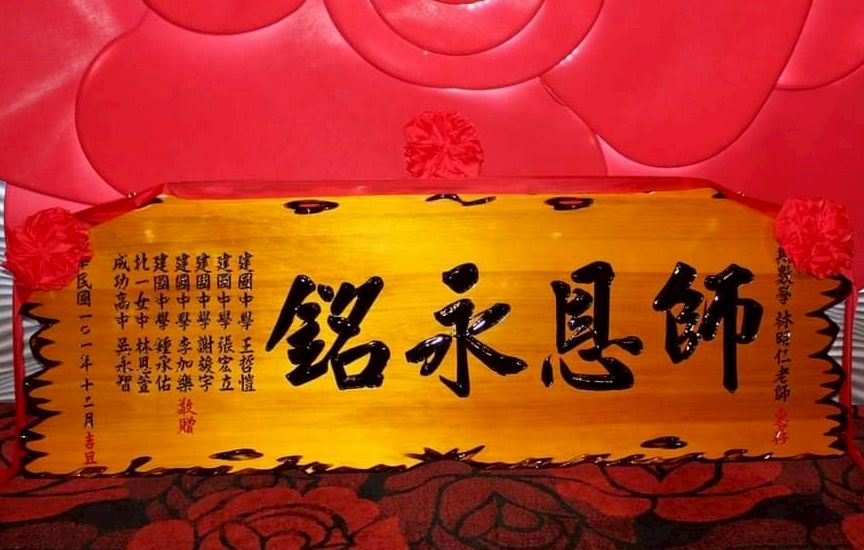 數學 林昭仁老師 惠存
師恩永銘
建國中學 王哲愷
建國中學 張宏立
建國中學 謝竣宇
建國中學 李加樂
建國中學 鍾承佑
北一女中 林恩萱
成功高中 吳永智
敬贈
民國一〇一年十二月 吉旦